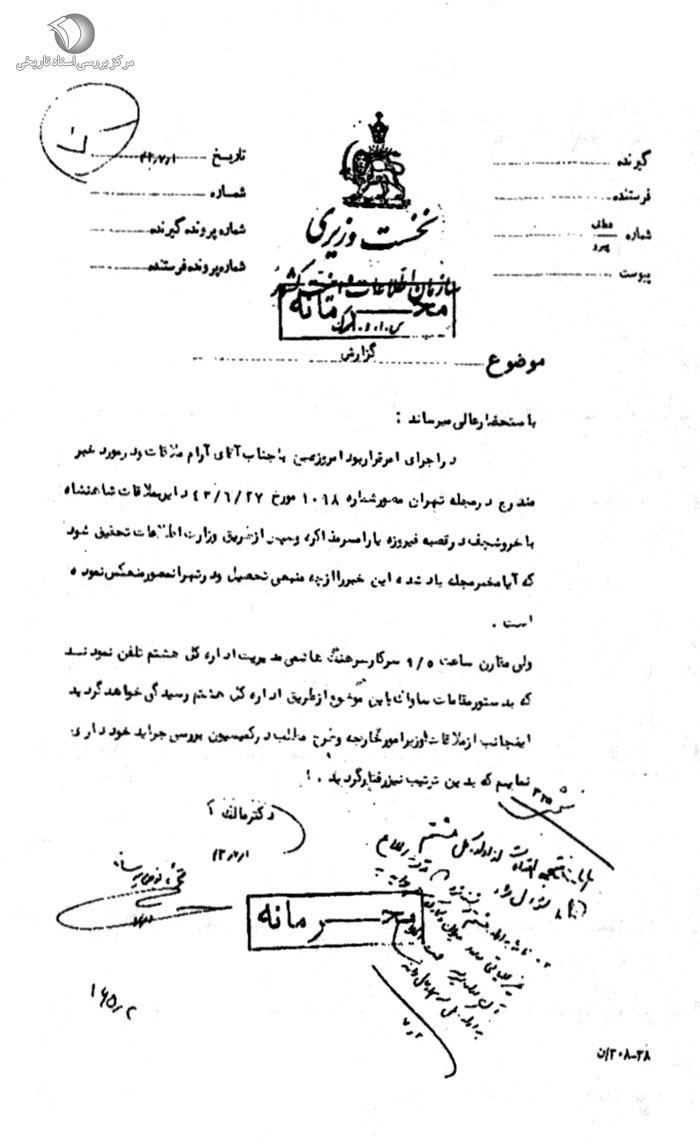 مرکز بررسی اسناد تاریخی
گیرنده
فرستنده
شماره عطف پیرو
پیوست
نخست وزیری
سازمان اطلاعات و امنیت کشور
س.ا.و.ا.ک
محرمانه
تاریخ ۴۳/۷/۱
شماره
شماره پرونده گیرنده
شماره پرونده فرستنده
موضوع گزارش
باستحضارعالی میرساند :
در اجرای امر قرار بود امروز صبح با جناب آقای آرام ملاقات و در مورد خبر
مندرج در مجله تهران مصور شماره ۱۰۹۸ مورخ ۴۳/۶/۲۷ دایر بملاقات شاهنشاه
با خروشچف در قصبه فیروزه با رامسر مذاکره و سپس از طریق وزارت اطلاعات تحقیق شود
که آیا مخبر مجله یاد شده این خبر را از چه منبعی تحصیل و در تهران مصور منعکس نموده
است .
ولی مقارن ساعت ۹/۵ سرکار سرهنگ هاشمی مدیریت اداره کل هشتم تلفن نمودند
که بدستور مقامات ساواک باین موضوع از طریق اداره کل هشتم رسیدگی خواهد گردید
اینجانب از ملاقات وزیر امور خارجه و طرح مطلب در کمیسیون بررسی جراید خودداری
نمایم که بدین ترتیب نیز رفتار گردید . !
دکتر مالک
۴۳/۷/۱
محرمانه
۱۶۵/۲
۳۸-۳۰۸/ن